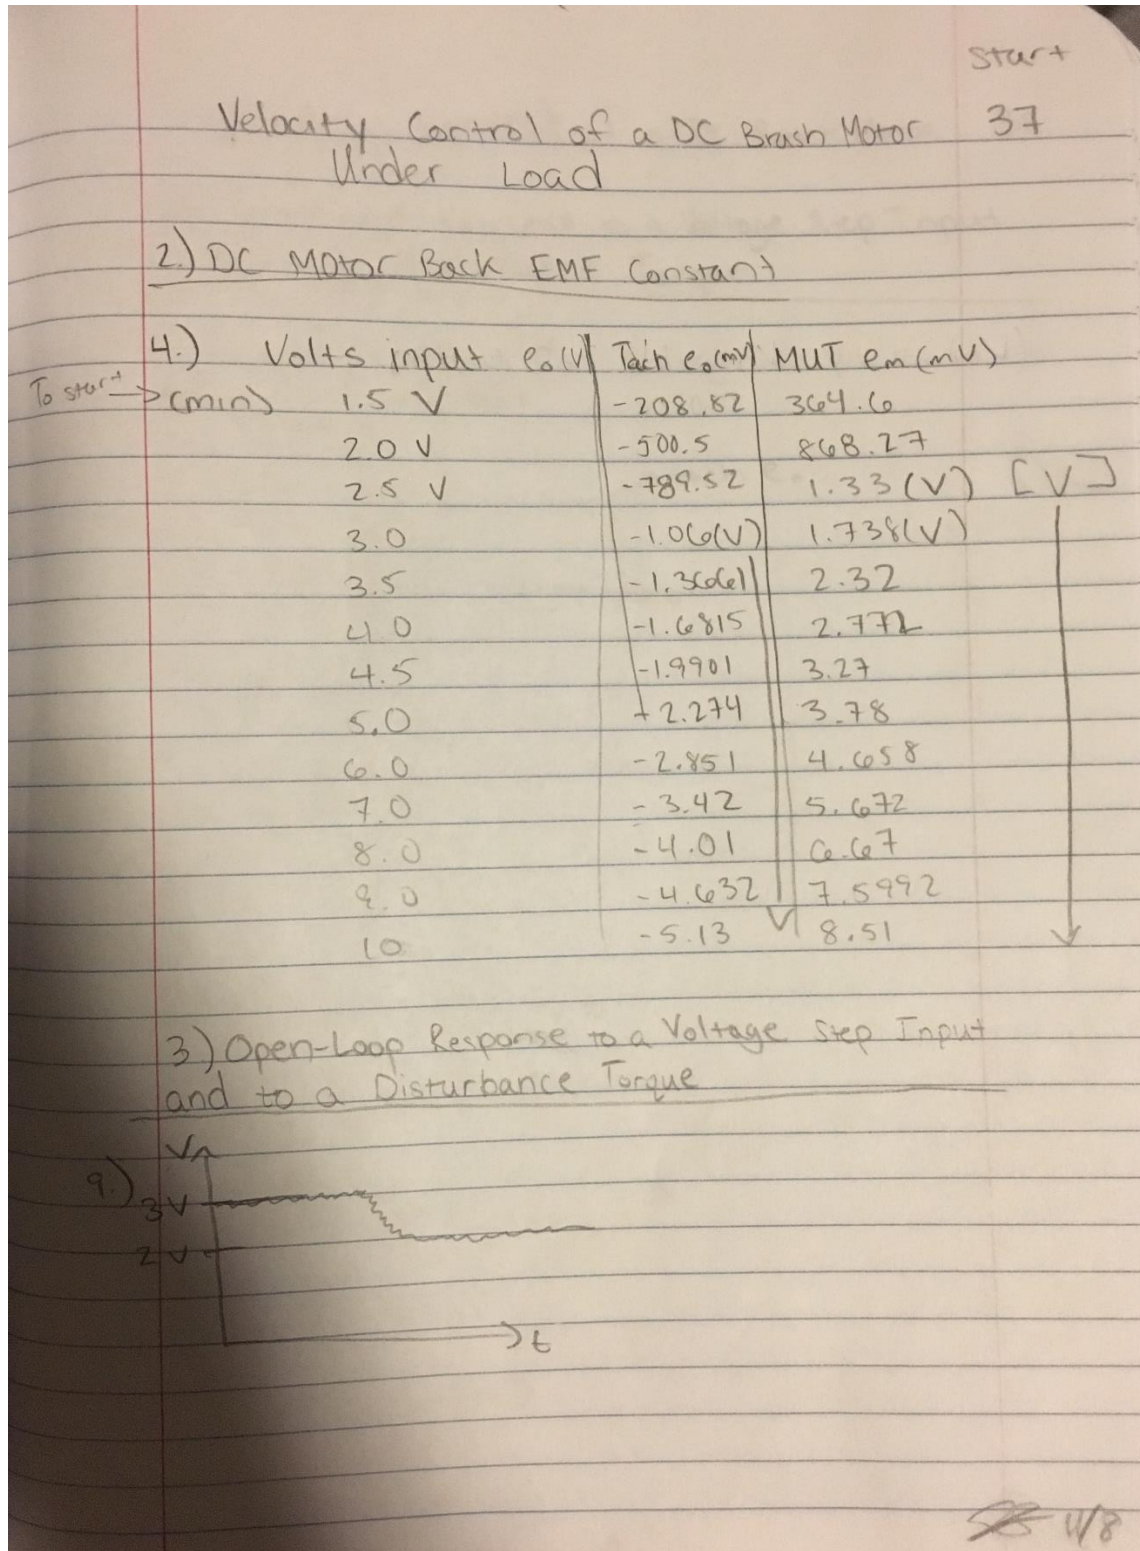 Start
Velocity Control of a DC Brush Motor 37
Under Load
2.) DC Motor Back EMF Constant
4.) Volts input eo(V) Tach eo(mV) MUT em(mV)
To start → (min) 1.5 V -208.82 364.6
2.0 V -500.5 868.27
2.5 V -789.52 1.33(V) [V]
3.0 -1.06(V) 1.738(V)
3.5 -1.3661 2.32
4.0 -1.6815 2.772
4.5 -1.9901 3.27
5.0 -2.274 3.78
6.0 -2.851 4.658
7.0 -3.42 5.672
8.0 -4.01 6.67
9.0 -4.632 7.5992
10 -5.13 8.51
3.) Open-Loop Response to a Voltage Step Input
and to a Disturbance Torque
V
9.) 3V
2V
t
11/8